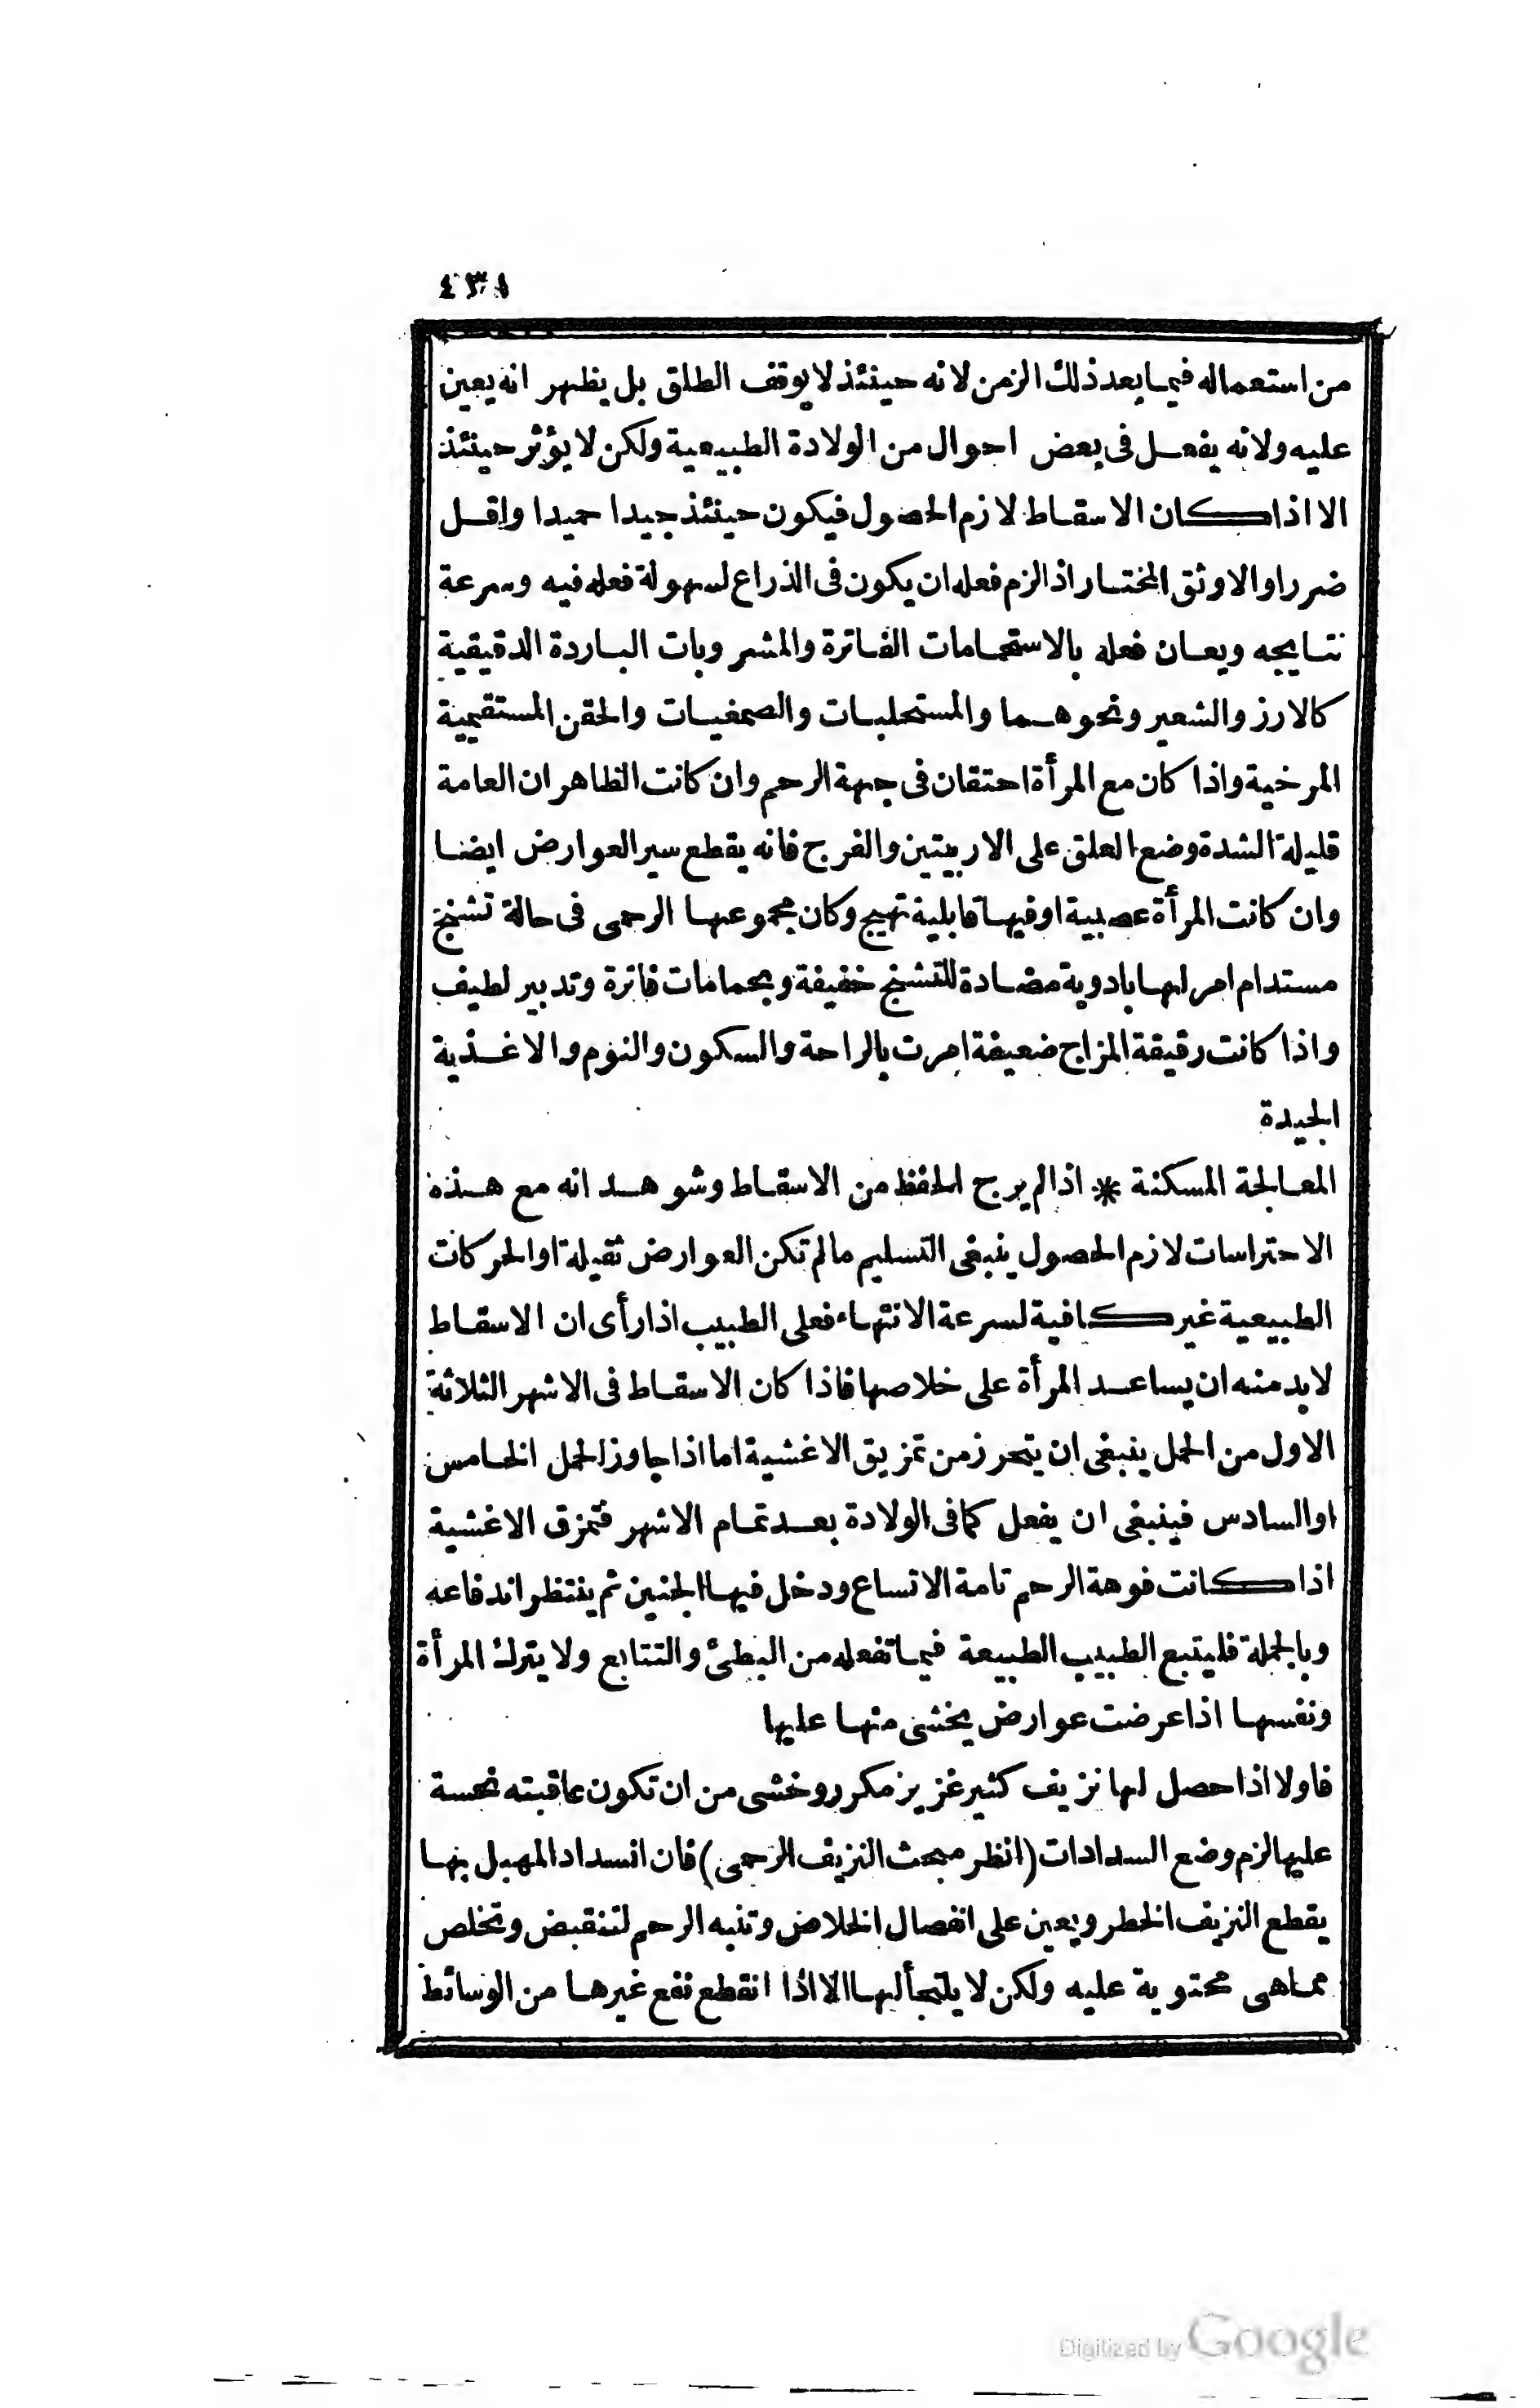 ٤٣٨
من استعماله فيما بعد ذلك الزمن لانه حينئذ لا يوقف الطلق بل يظهر انه يعين
عليه ولانه يفعل فى بعض احوال من الولادة الطبيعية ولكن لا يؤثر حينئذ
الا اذا كان الاسقاط لازم الحصول فيكون حينئذ جيدا حميدا واقل
ضررا والاوثق المختار اذا لزم فعله ان يكون فى الذراع لسهولة فعله فيه وسرعة
نتايجه ويعان فعله بالاستحمامات الفاترة والمشروبات الباردة الدقيقية
كالارز والشعير ونحوهما والمستحلبات والصمغيات والحقن المستقيمية
المرخية واذا كان مع المرأة احتقان فى جهة الرحم وان كانت الظاهران العامة
قليلة الشدة وضع العلق على الاربيتين والفرج فانه يقطع سير العوارض ايضا
وان كانت المرأة عصبية او فيها قابلية تهيج وكان مجموعها الرحمى فى حالة تشنج
مستدام امر لها بادوية مضادة للتشنج خفيفة وبحمامات فاترة وتدبير لطيف
واذا كانت رقيقة المزاج ضعيفة امرت بالراحة والسكون والنوم والاغذية
الجيدة
المعالجة المسكنة * اذا لم يرج الحفظ من الاسقاط وشوهد انه مع هذه
الاحتراسات لازم الحصول ينبغى التسليم ما لم تكن العوارض ثقيلة او الحركات
الطبيعية غير كافية لسرعة الانتهاء فعلى الطبيب اذا رأى ان الاسقاط
لابد منه ان يساعد المرأة على خلاصها فاذا كان الاسقاط فى الاشهر الثلاثة
الاول من الحمل ينبغى ان يتحرز من تمزيق الاغشية اما اذا جاوز الحمل الخامس
او السادس فينبغى ان يفعل كما فى الولادة بعد تمام الاشهر فتمزق الاغشية
اذا كانت فوهة الرحم تامة الاتساع ودخل فيها الجنين ثم ينتظر اندفاعه
وبالجملة فليتبع الطبيب الطبيعة فيما تفعله من البطئ والتتابع ولا يترك المرأة
ونفسها اذا عرضت عوارض يخشى منها عليها
فاولا اذا حصل لها نزيف كثير غزير مكرر وخشى من ان تكون عاقبته نحسة
عليها لزم وضع السدادات (انظر مبحث النزيف الرحمى) فان انسداد المهبل بها
يقطع النزيف الخطر ويعين على انفصال الخلاص وتنبه الرحم لتنقبض وتخلص
مما هى محتوية عليه ولكن لا يلتجأ لها الا اذا انقطع نفع غيرها من الوسائط
Digitized by Google